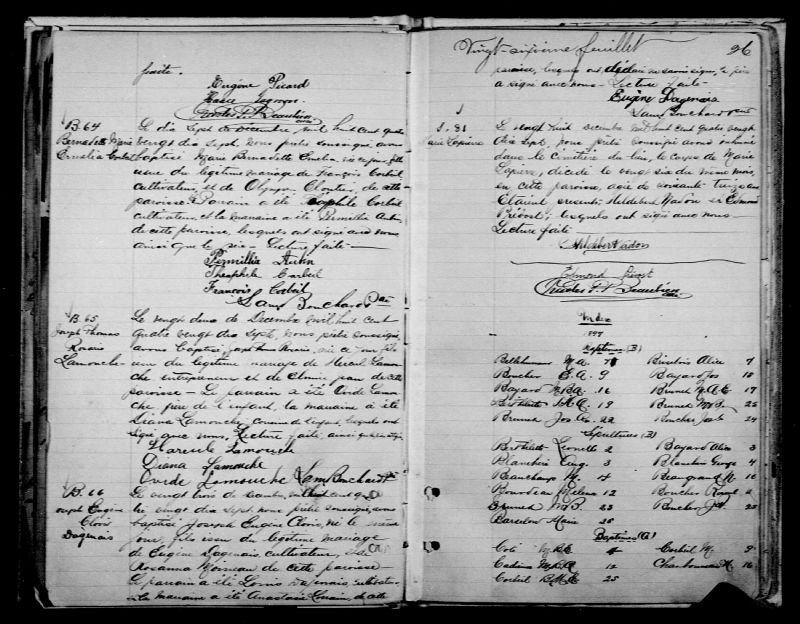 faite.
Eugène Picard
Charles P. Beaubien
B. 64
Bernadette Marie
Emelia Corbeil
Le dix sept de décembre mil huit cent quatre
vingt dix sept, nous prêtre soussigné avons
baptisé Marie Bernadette Emelia, née ce jour, fille
issue du légitime mariage de François Corbeil
cultivateur, et de Olympe Cloutier, de cette
paroisse. Parrain a été Théophile Corbeil
cultivateur, et la marraine a été Permillia Aubin
de cette paroisse, lesquels ont signé avec nous
ainsi que le père — Lecture faite —
Permillia Aubin
Théophile Corbeil
François Corbeil
Sam Bouchard Ptre
B. 65
Joseph Thomas
Rosario
Lamouche
Le vingt deux de Decembre mil huit cent
quatre vingt dix sept, nous prêtre soussigné,
avons baptisé, Joseph Thomas Rosario, né ce jour fils
issu du légitime mariage de
Lamouche entrepreneur et de
paroisse — Le parrain a été Ovide Lamouche
frère de l'enfant, la marraine a été
Diana Lamouche, cousine de l'enfant lesquels ont
signé avec nous, Lecture faite
Hercule Lamouche
Diana Lamouche
Ovide Lamouche Sam Bouchard Ptre
B. 66
Joseph Eugène
Clovis
Dagenais
Le vingt trois décembre mil huit cent quatre
vingt dix sept nous prêtre soussigné, avons
baptisé Joseph Eugène Clovis, né le même
jour, fils issu du légitime mariage
de Eugène Dagenais cultivateur, et de
Rosanna de cette paroisse
Le parrain a été Dagenais cultivateur
La marraine a été Anastasie de cette
Vingt-sixième feuillet 26
paroisse, lesquels ont déclaré ne savoir signer, le père
a signé avec nous — Lecture faite —
Eugène Dagenais
Sam Bouchard Ptre
S. 31
Marie Lapierre
Le vingt huit decembre mil huit cent quatre vingt
dix sept, nous prêtre soussigné avons inhumé
dans le cimetière du lieu, le corps de Marie
Lapierre, décédée le vingt six du même mois,
en cette paroisse, agée de soixante treize ans
Etaient présents Hildebert Nadon et Edmond
Prévost; lesquels ont signé avec nous —
Lecture faite —
Hildebert Nadon
Edmond Prévost
Charles P. Beaubien
Index
1897
Baptêmes (B)
M. A. 7
Brisebois Alice 7
Boucher E. A. 9
Bayard Jos 15
Bayard M. B. A. 16
Brunel M. A. E 17
Berthelette M. A. 19
Brunel M. B. 22
Brunel Jos A. 22
Boucher Jos 24
Sépultures (B)
Berthelette Lionelle 2
Bayard Alice 3
Blanchère Eug. 3
Blanchère George 4
Beauchamp M. 4
Beaugrand M. 10
Bourdeau Melina 12
Boucher 5
Brunel M. B. 23
Boucher Jos. 25
Barcelow Marie 25
Baptêmes (C)
Coté
Corbeil M. 9
Cadieux 12
Charbonneau 16
Corbeil B. M. E. 25